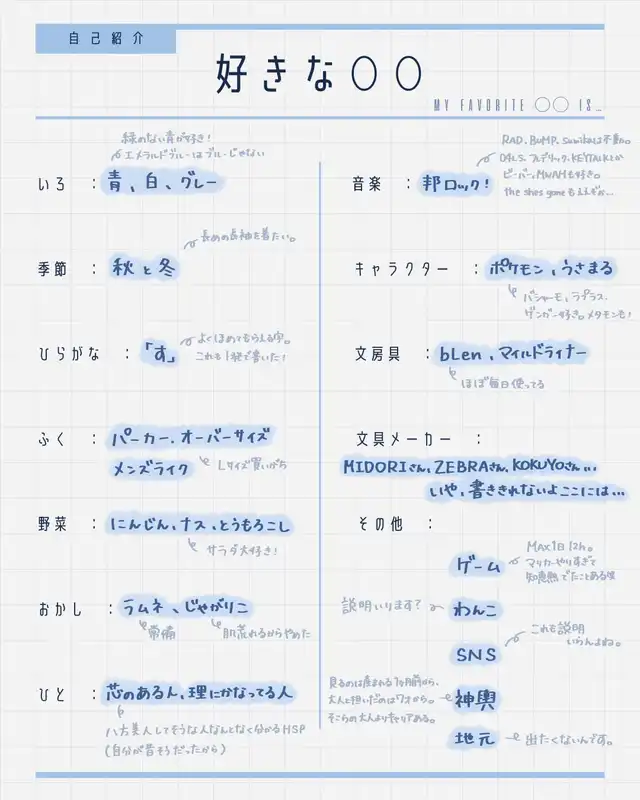 自己紹介
好きな〇〇
MY FAVORITE 〇〇 IS_
緑のない青が好き!
エメラルドブルーはブルーじゃない
いろ : 青、白、グレー
長めの長袖を着たい。
季節 : 秋と冬
ひらがな : 「す」
よくほめてもらえる字。
これも1発で書いた!
ふく : パーカー、オーバーサイズ
メンズライク
Lサイズ買いがち
野菜 : にんじん、ナス、とうもろこし
サラダ大好き!
おかし : ラムネ、じゃがりこ
常備
肌荒れるからやめた
ひと : 芯のある人、理にかなってる人
八方美人してそうな人なんとなく分かるHSP
(自分が昔そうだったから)
RAD、BUMP、sumikaは不動。
04LS、フレデリック、KEYTALKとか
ビーバー、MWAMも好き。
the shes goneもええぞぉ…
音楽 : 邦ロック!
キャラクター : ポケモン、うさまる
バシャーモ、ラプラス、
ゲンガー好き。メタモンも!
文房具 : bLen、マイルドライナー
ほぼ毎日使ってる
文具メーカー :
MIDORIさん、ZEBRAさん、KOKUYOさん…
いや、書ききれないよここには…
その他 :
ゲーム
MAX1日12h。
マリカーやりすぎて
知恵熱でたことある
説明いります?
わんこ
SNS
これも説明
いらんよね。
見るのは産まれる1ヶ月前から、
大人と担いだのは7才から。
そこらの大人よりキャリアある。
神輿
地元
出たくないんです。